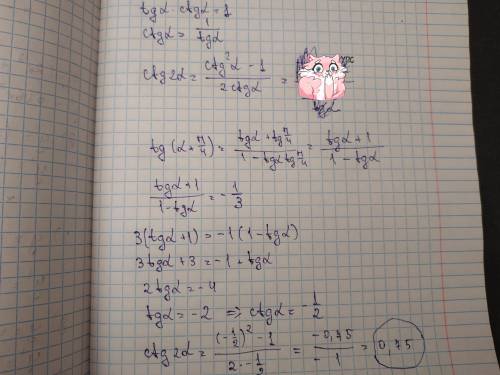 tgα · ctgα = 1
ctgα = 1/tgα
ctg2α = (ctg²α - 1)/(2ctgα) =
tgα
tg(α + π/4) = (tgα + tg π/4)/(1 - tgα tg π/4) = (tgα + 1)/(1 - tgα)
(tgα + 1)/(1 - tgα) = - 1/3
3(tgα + 1) = -1(1 - tgα)
3tgα + 3 = -1 + tgα
2tgα = -4
tgα = -2 => ctgα = - 1/2
ctg2α = ((-1/2)² - 1)/(2 · -1/2) = (-0,75)/(-1) = 0,75